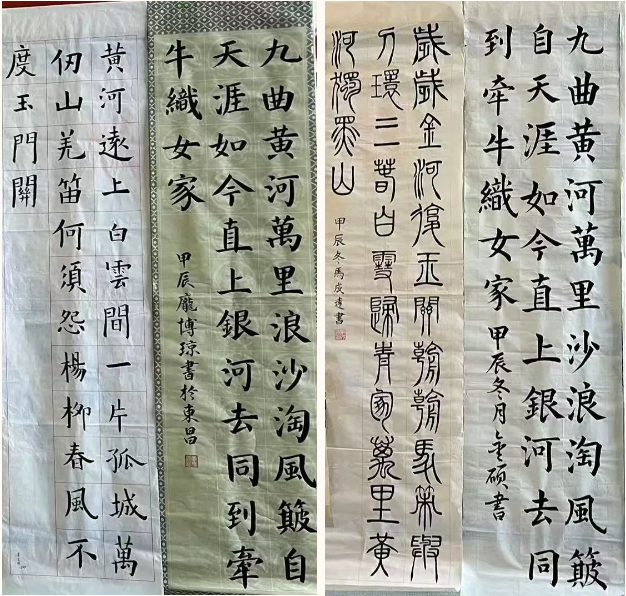 黃河遠上白雲間一片孤城萬
仞山羌笛何須怨楊柳春風不
度玉門關
九曲黃河萬里浪沙淘風簸自
天涯如今直上銀河去同到牽
牛織女家
甲辰龐博琼書於東昌
歲歲金河復玉關朝朝馬策與
刀環三春白雪歸青冢萬里黃
河繞黑山
甲辰冬馬成達書
九曲黃河萬里沙浪淘風簸
自天涯如今直上銀河去同
到牽牛織女家 甲辰冬月金碩書